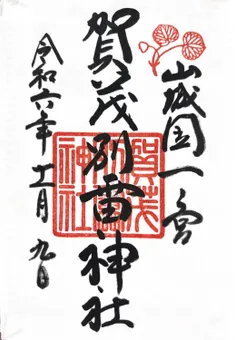 山城国一之宮
賀茂別雷神社
賀茂別雷神社
令和六年十一月九日